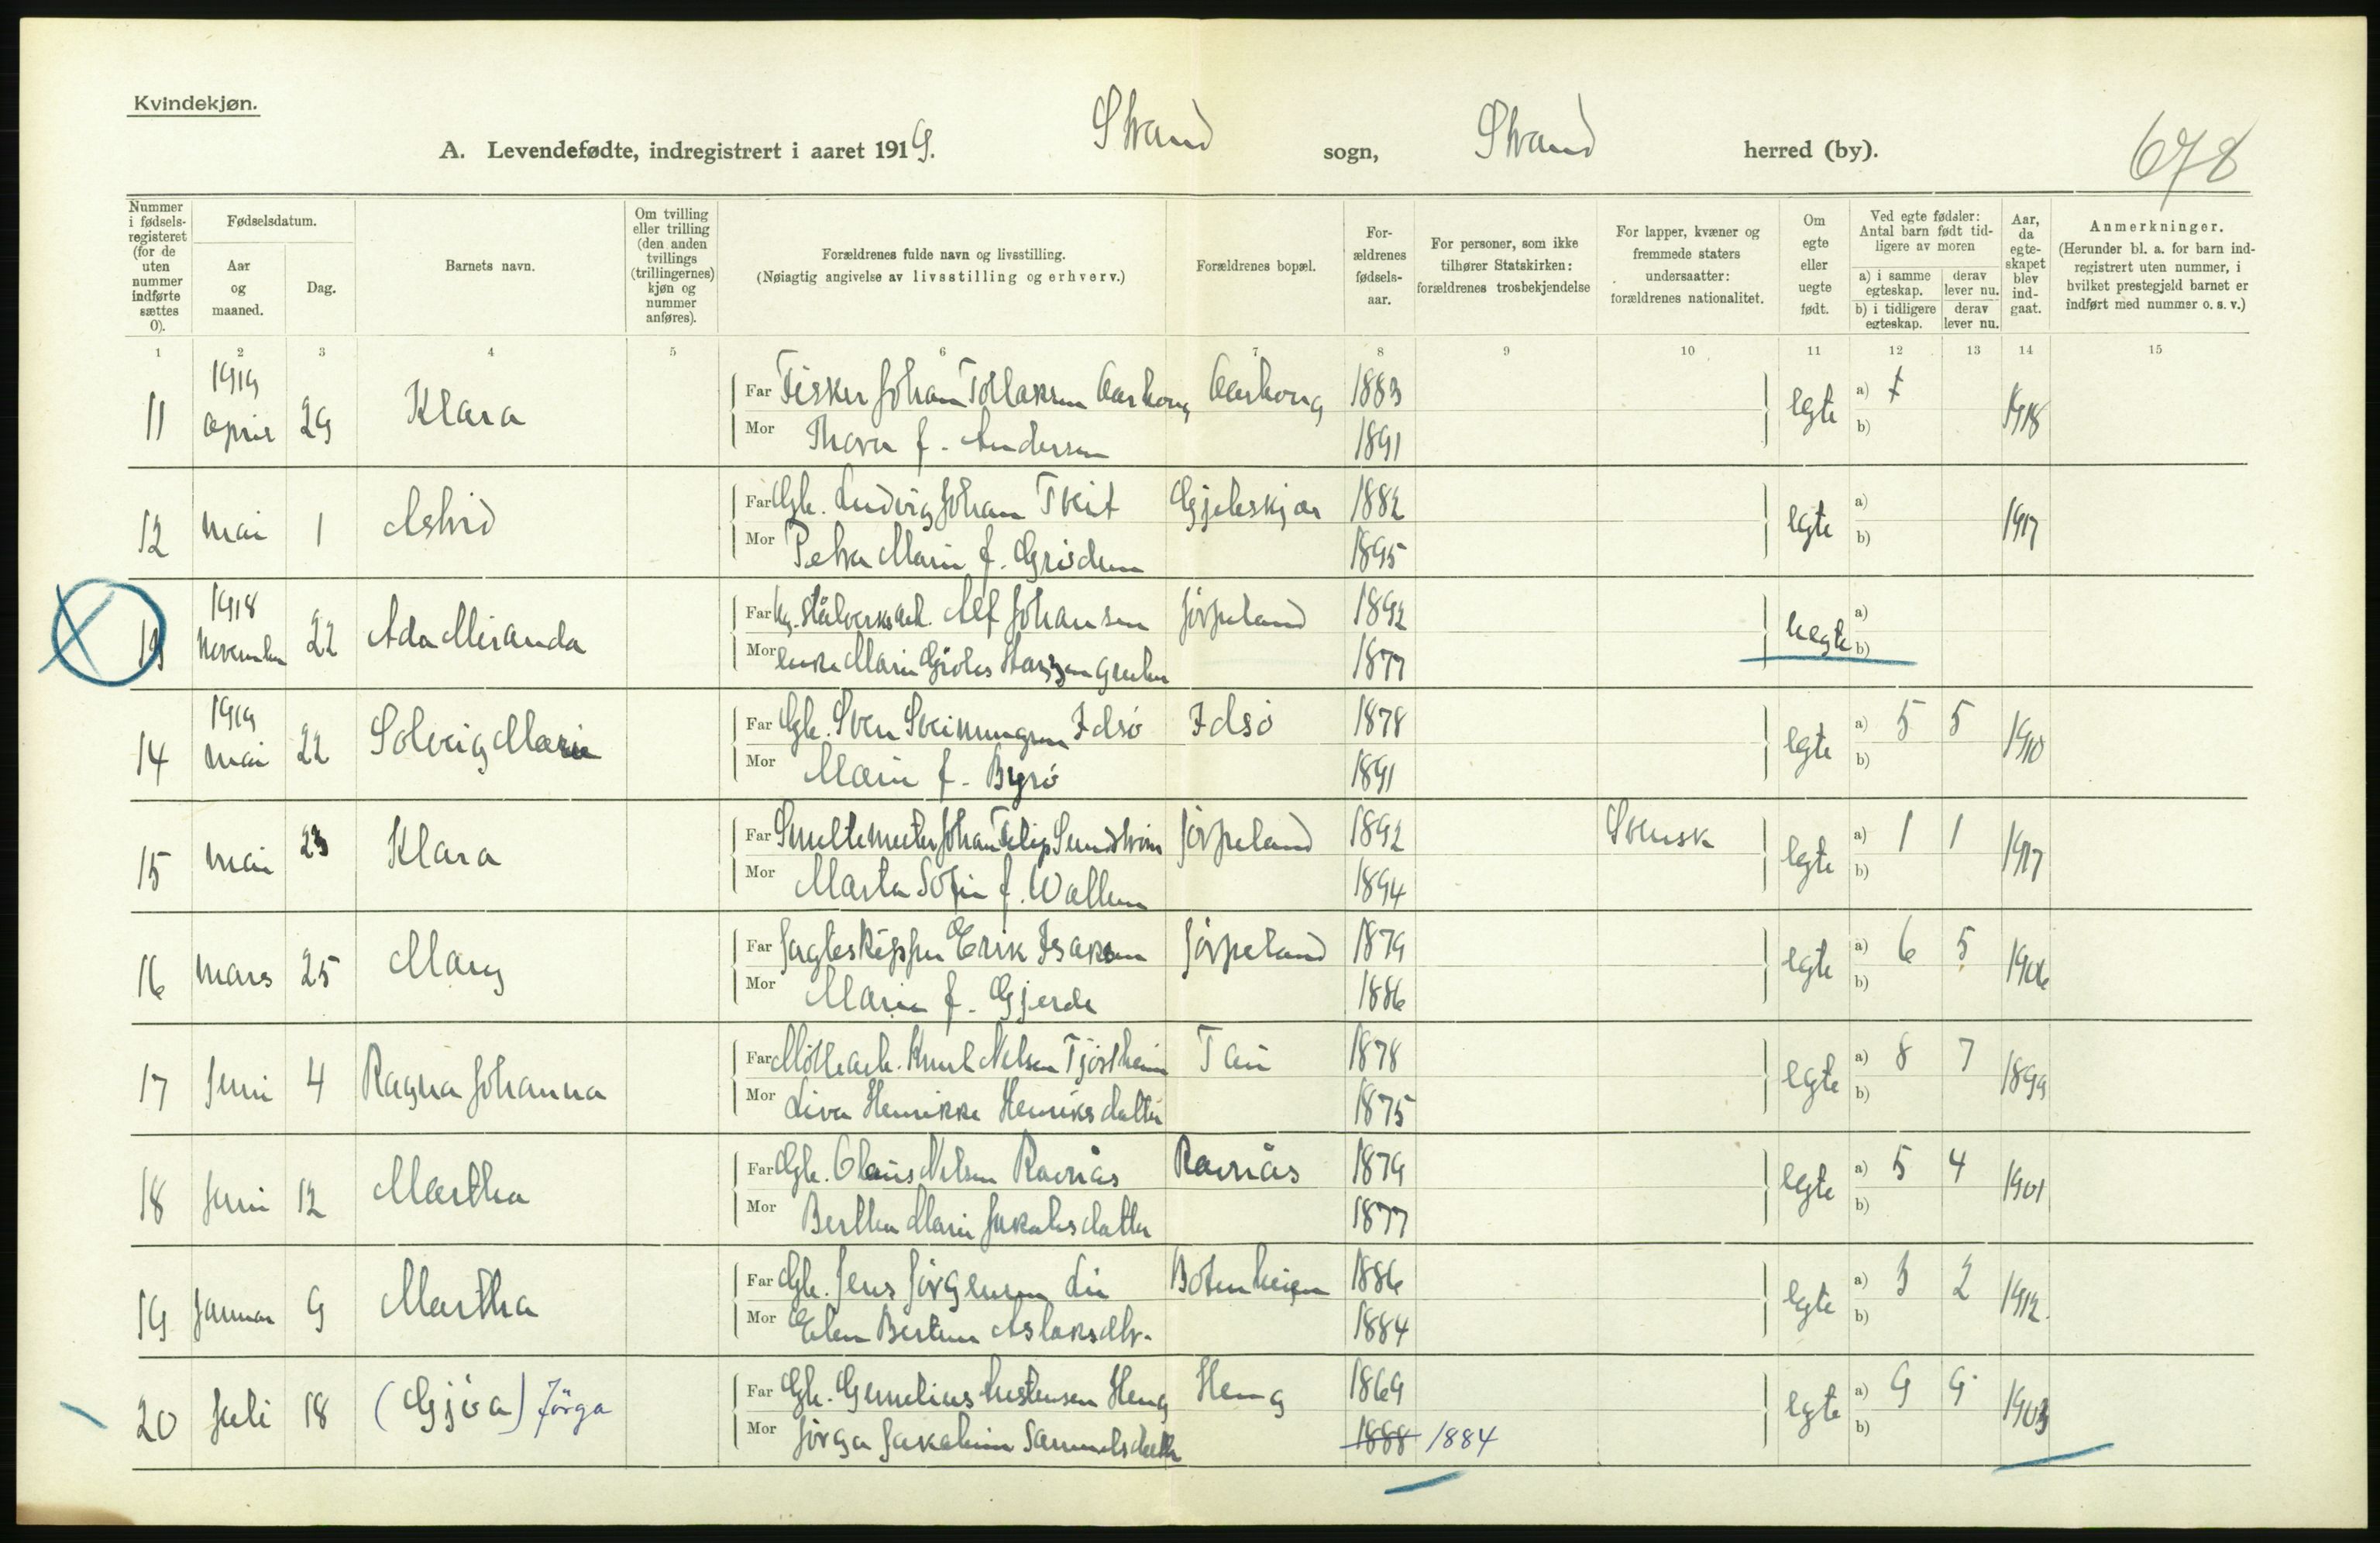 Kvindekjøn.
A. Levendefødte, indregistrert i aaret 1919. Strand sogn, Strand herred (by). 678
Nummer i fødsels-registeret (for de uten nummer indførte sættes 0).
Fødselsdatum.
Aar og maaned.
Dag.
Barnets navn.
Om tvilling eller trilling (den anden tvillings (trillingernes) kjøn og nummer anføres).
Forældrenes fulde navn og livsstilling.
(Nøiagtig angivelse av livsstilling og erhverv.)
Forældrenes bopæl.
For-ældrenes fødsels-aar.
For personer, som ikke tilhører Statskirken: forældrenes trosbekjendelse
For lapper, kvæner og fremmede staters undersaatter: forældrenes nationalitet.
Om egte eller uegte født.
Ved egte fødsler: Antal barn født tid-ligere av moren
a) i samme egteskap. derav lever nu.
b) i tidligere egteskap. derav lever nu.
Aar, da egte-skapet blev ind-gaat.
Anmerkninger.
(Herunder bl. a. for barn ind-registrert uten nummer, i hvilket prestegjeld barnet er indført med nummer o. s. v.)
1 2 3 4 5 6 7 8 9 10 11 12 13 14 15
11 1919 April 29 Klara Far Fisker Johan Tollaksen 1883 egte a) 1918
Mor Thora f. Andersen 1891 b)
12 Mai 1 Astrid Far Gbr. Ludvig Johan Tveit 1882 egte a) 1917
Mor Petra Marie f. 1895 b)
13 1918 November 22 Ada Miranda Far Alf Johansen Jørpeland 1892 uegte a)
Mor Marie 1877 b)
14 1919 Mai 22 Solveig Marie Far Gbr. Sven Sveinungsen Idsø Idsø 1878 egte a) 5 5 1910
Mor Marie f. Byrø 1891 b)
15 Mai 23 Klara Far Smeltemester Johan Filip Sundström Jørpeland 1892 Svensk egte a) 1 1 1917
Mor Marta Sofie f. Wallen 1894 b)
16 Mars 25 Mary Far Jagteskipper Erik Isaksen Jørpeland 1879 egte a) 6 5 1906
Mor Marie f. Gjerde 1886 b)
17 Juni 4 Ragna Johanna Far Møllearb. Knut Nilsen Tjøstheim Tau 1878 egte a) 8 7 1899
Mor Liva Henrikke Henriksdatter 1875 b)
18 Juni 12 Martha Far Gbr. Olaus Nilsen Ravnås Ravnås 1879 egte a) 5 4 1901
Mor Bertha Marie Jakobsdatter 1877 b)
19 Januar 9 Martha Far Gbr. Jens Jørgensen Lie Botneheien 1886 egte a) 3 2 1912.
Mor Elen Bertine Aslaksdtr. 1884 b)
20 Juli 18 (Gjöa) Jörga Far Gbr. Heng Heng 1869 egte a) 9 9 1903
Mor Jörga Jakobine Samuelsdatter 1888 1884 b)